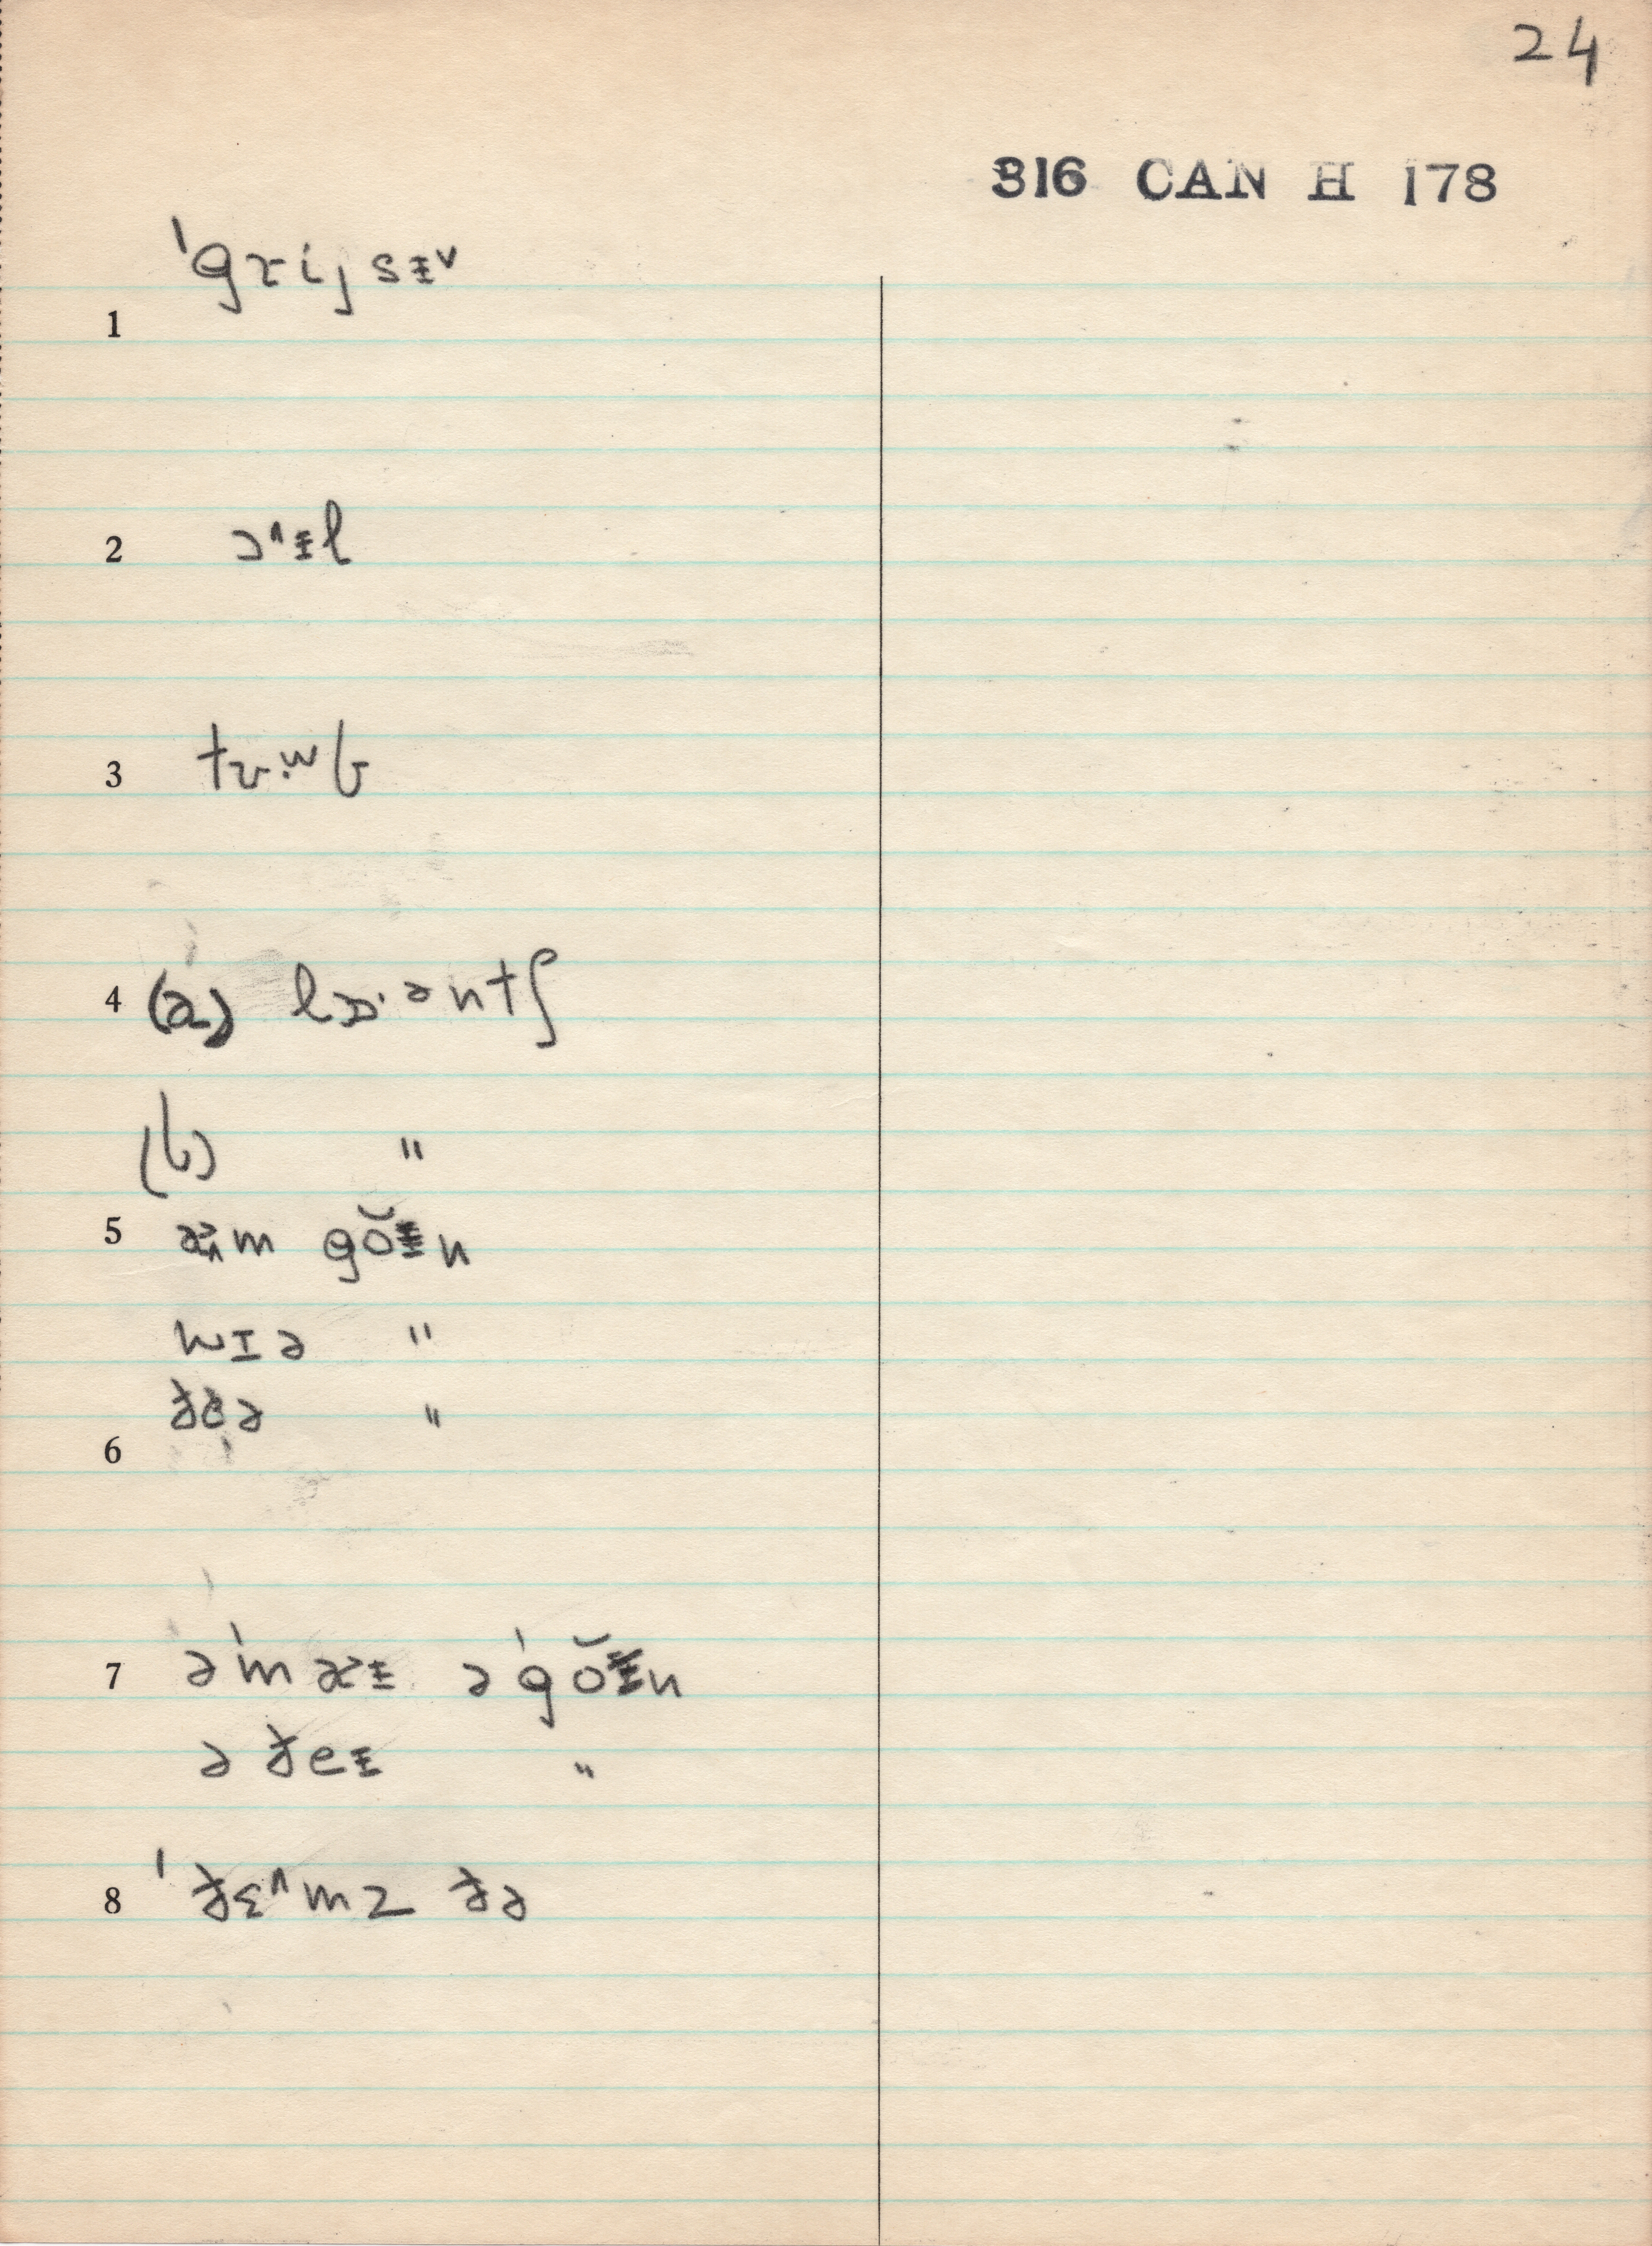 24
316 CAN H 178
1 ˈgɾijsɪ̵ᵛ
2 ɔ^ɪ̵l
3 tʊ.ʷb
4 (a) lɒ·ənt∫
(b) "
5 gŏɪ̵n
wɪə "
ðe̞ə "
6
7 əˈmæɪ̵ əˈgŏɪ̵n
ə ðeɪ̵ "
8 ˈðɛ^mz ðə